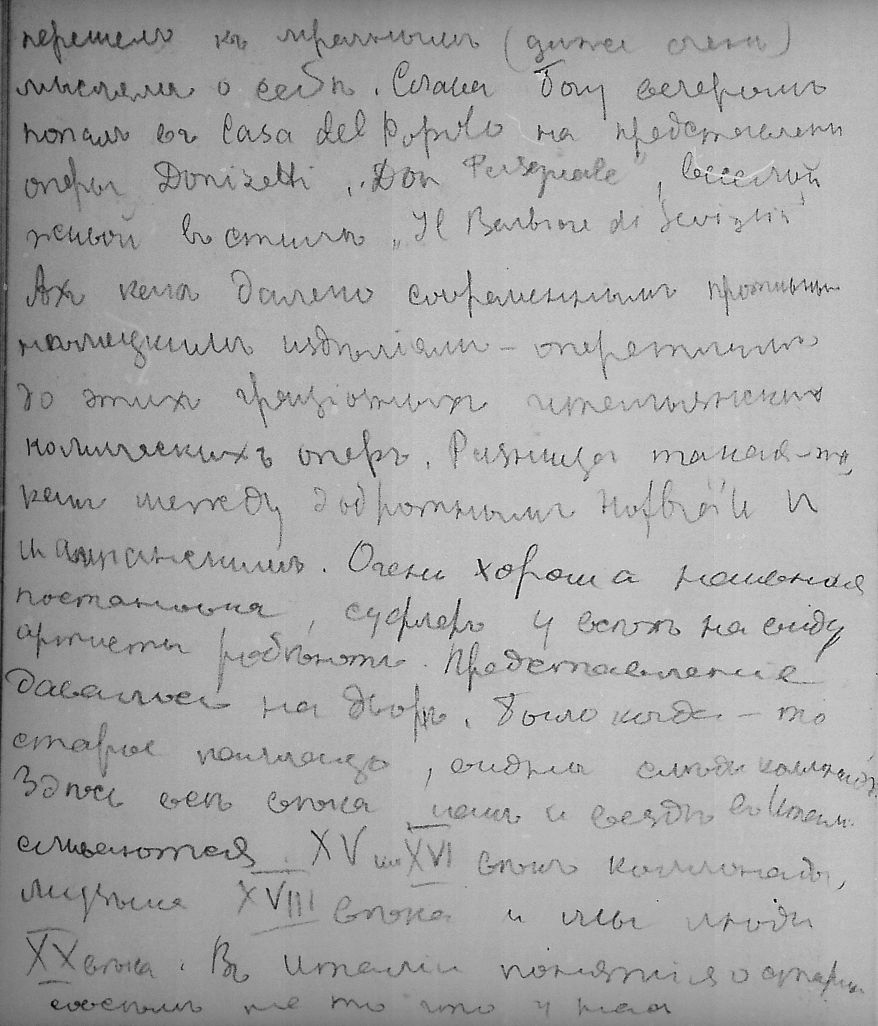 перешелъ къ мрачнымъ (даже очень)
мыслямъ о себѣ. Слава Богу вечеромъ
попалъ въ Casa del Popolo на представленiе
оперы Donizetti „Don Pasquale", веселой
живой въ стилѣ „Il Barbiere di Seviglia"
Ах как далеко современнымъ
немецкимъ издѣлiямъ – опереткамъ
до этих грацiозных итальянских
комическихъ оперъ. Разница такая-же
как между добротнымъ Hofbräu и
шампанскимъ. Очень хороша наивная
постановка, суфлеръ у всѣхъ на виду
артисты робѣютъ. Представленiе
давалось на дворѣ. Было когда-то
старое палаццо, видны слѣды колоннадъ.
Здѣсь всѣ вѣка какъ и вездѣ въ Итал.
сливаются. XV и XVI вѣкъ коллонады,
музыка XVIII вѣка и мы люди
XX вѣка. Въ Италiи понятiя о старинѣ
совсѣмъ не то что у насъ